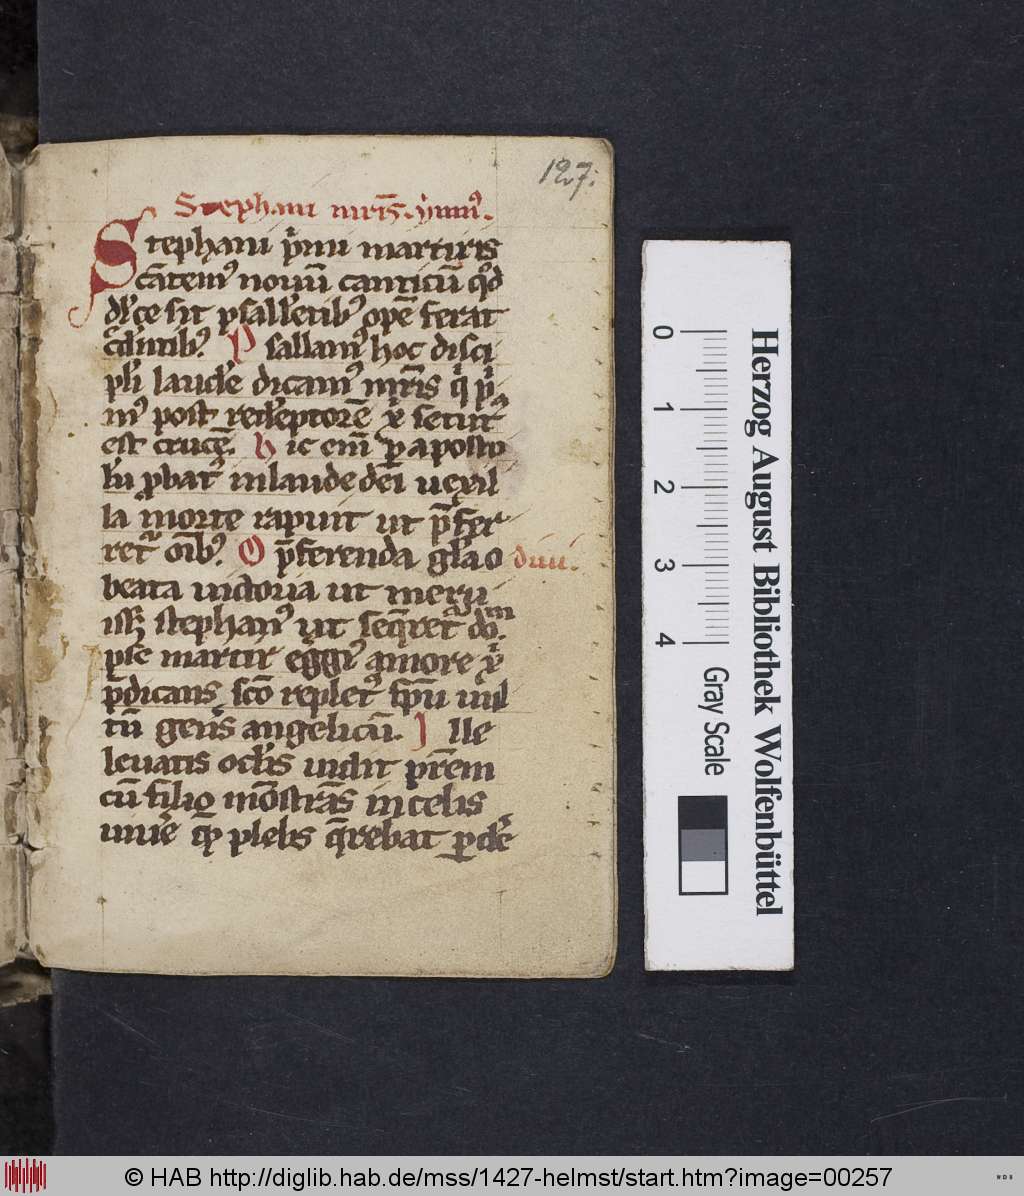 127.
Stephani mr̄is. ẏmnꝰ.
Stephani p̄mi martiris
cātemꝰ nouū canticū qͦd
dl̓ce sit psall̓etibꝰ opē ferat
cdētibꝰ. Psallamꝰ hoc disci
pl̓i laude dicamꝰ mr̄is q̇ p̓
mꝰ post red̓eptorē xp̄ secut᷒
est crucē. Hic em̄ ꝑ aposto
lū ꝓbatꝰ in laude dei uexil
la morte rapuit ut p̄fer
ret᷒ oīb᷒. O p̄ferenda gl̓a o diui.
beata uictoria ut meru
isset stephanꝰ ut seq̄ret᷒ dn̄m.
pse martir eggiꝰ amore xp̄
p̄dicans sc̄o repletꝰ sp̄u uul
tū gerēs angelicū. Ille
leuatis ocl̓is uidit pr̄em
cū filio mōstrās in celis
uiuē q̄ plebs q̄rebat ꝑde͛
Herzog August Bibliothek Wolfenbüttel
0 1 2 3 4
Gray Scale
© HAB http://diglib.hab.de/mss/1427-helmst/start.htm?image=00257